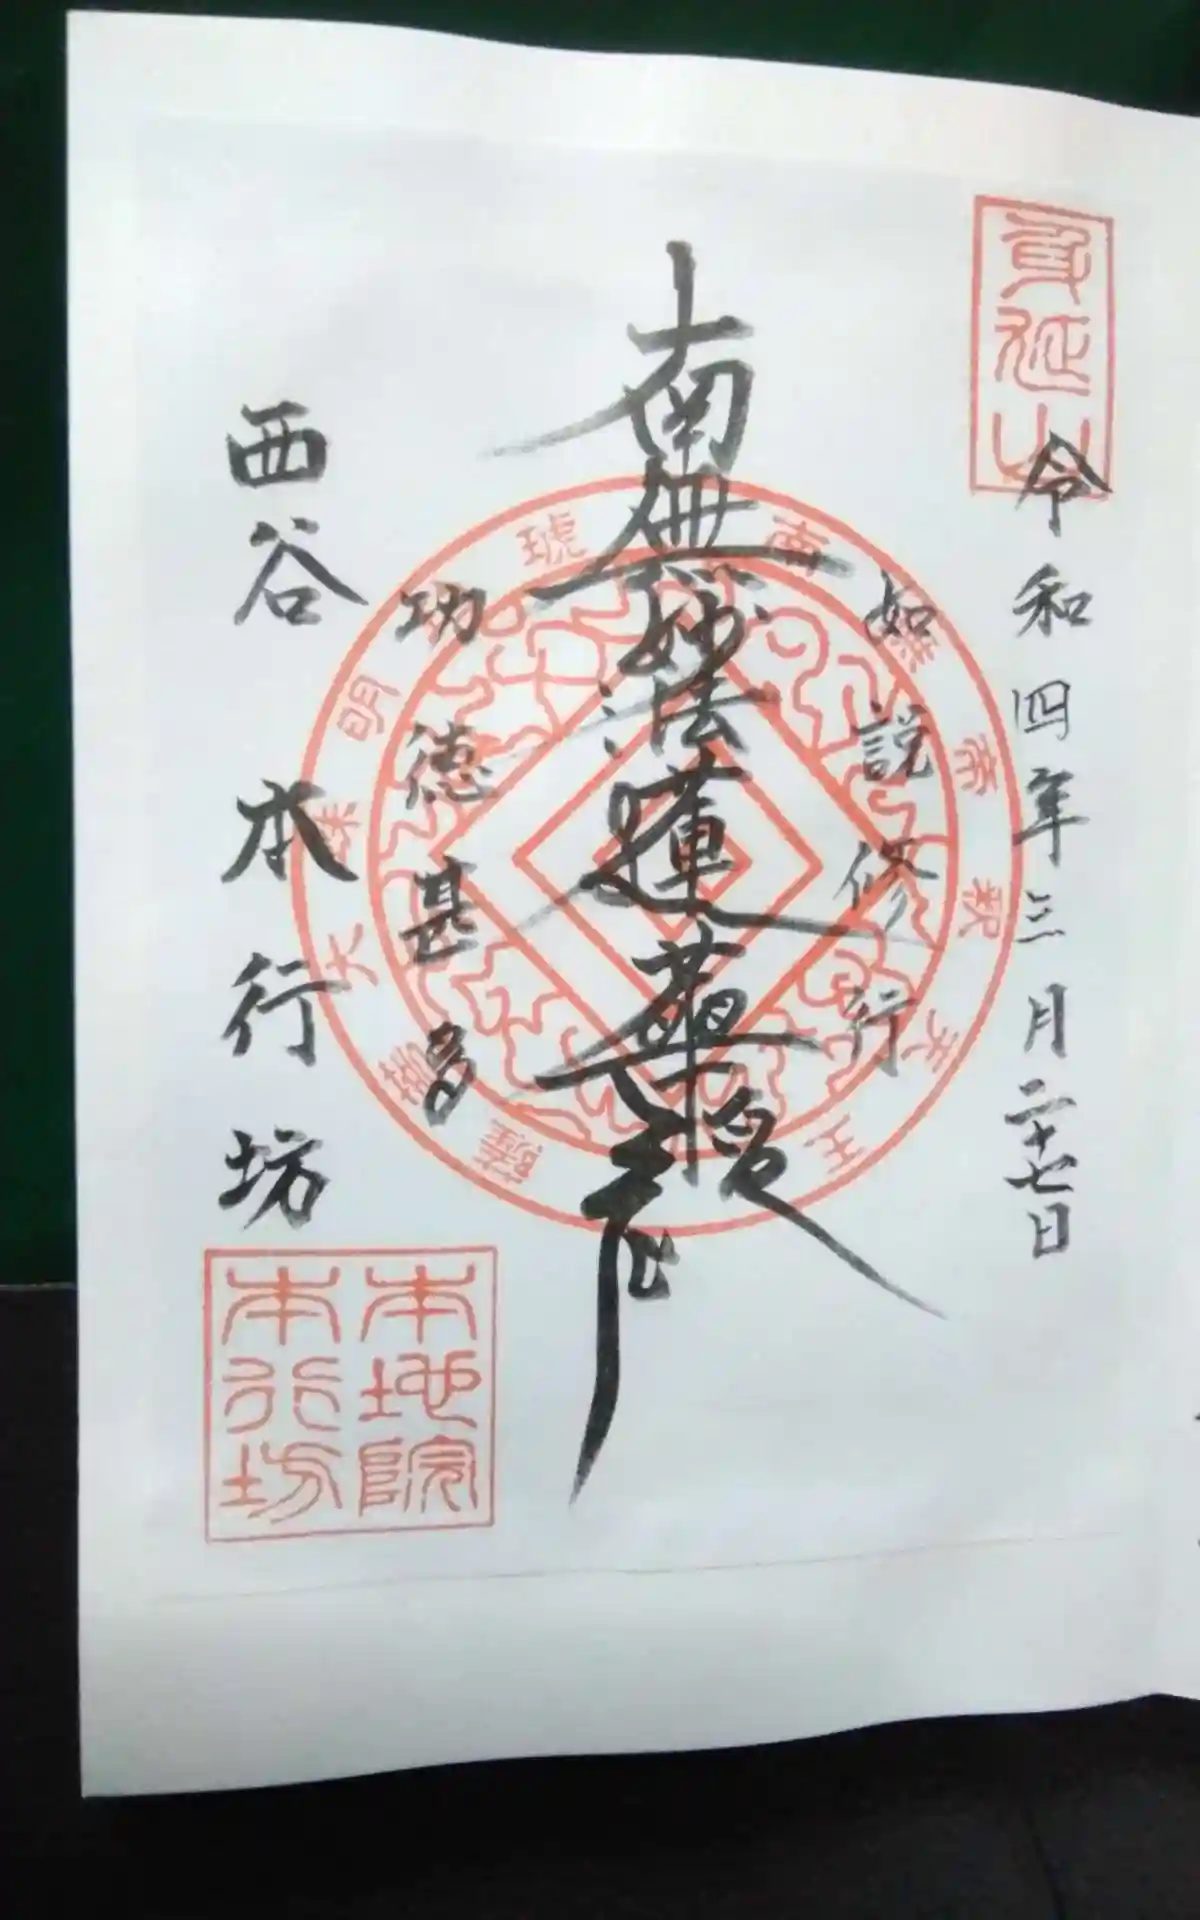 身延山
令和四年三月二十七日
如説修行
南無妙法蓮華経
功徳甚多
西谷
本行坊
本地院
本行坊